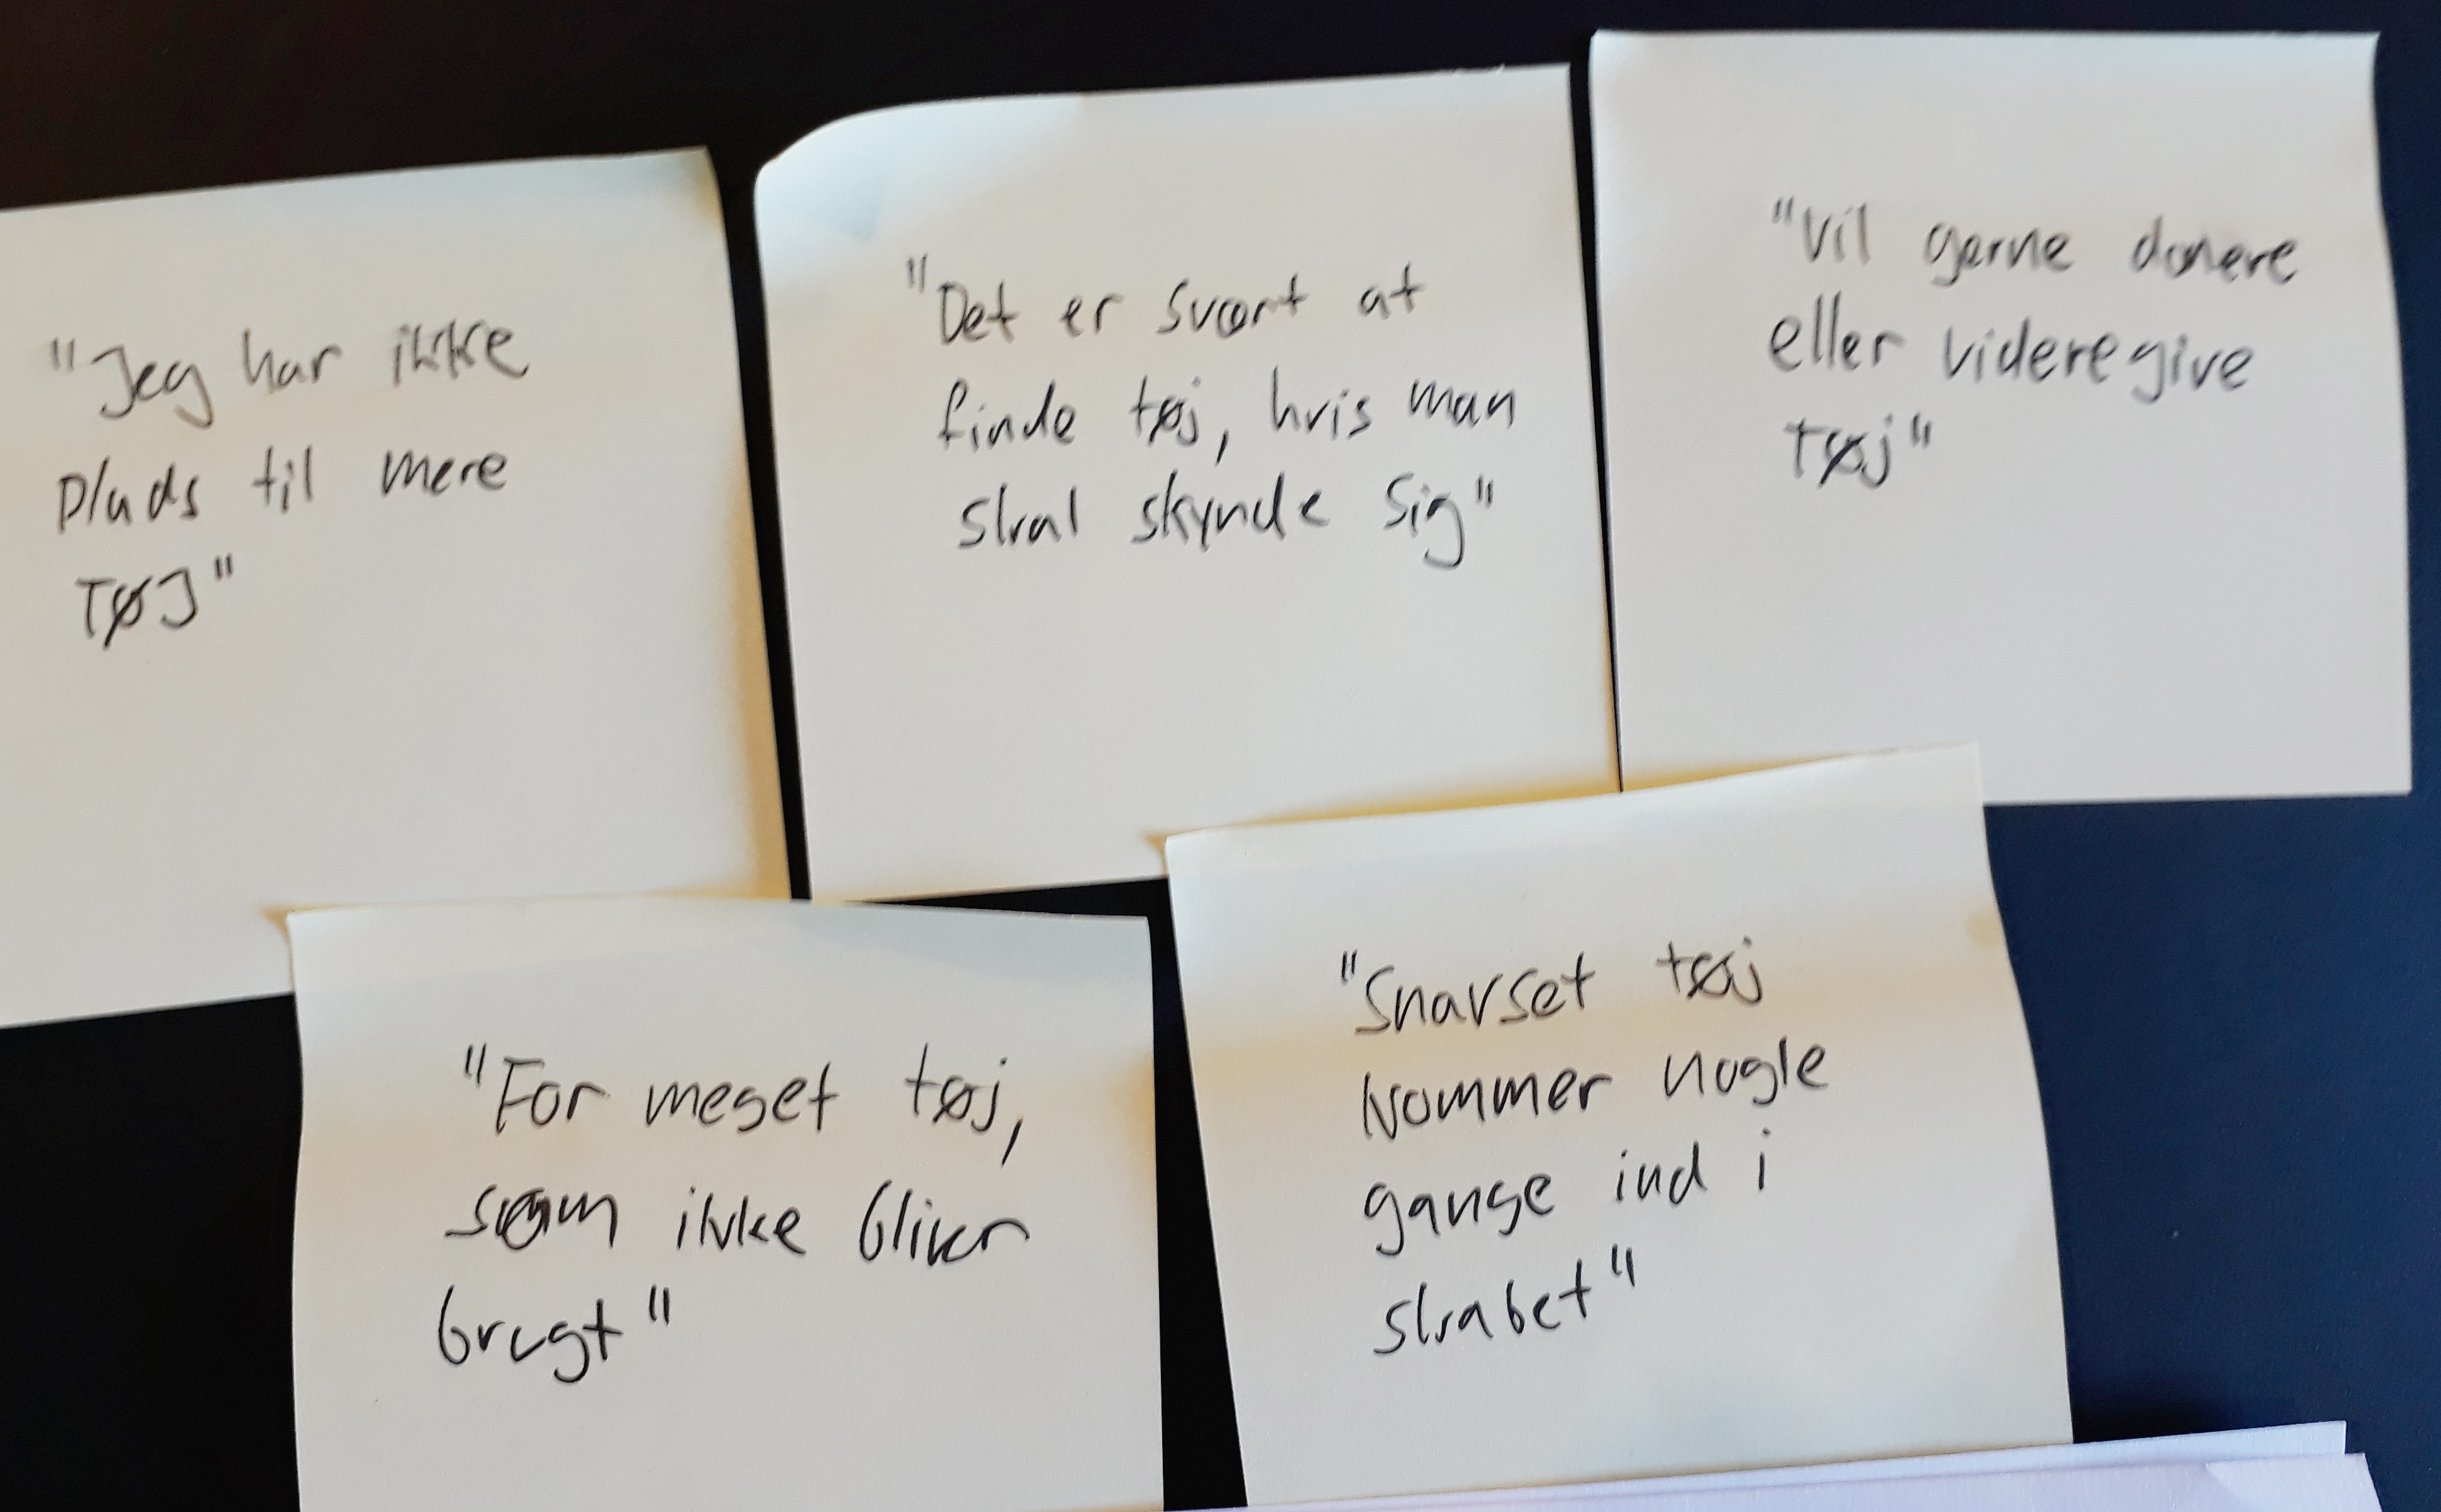 "Jeg har ikke
Plads til mere
TØJ"
"Det er svært at
finde tøj, hvis man
skal skynde sig"
"Vil gerne donere
eller videregive
tøj"
"For meget tøj,
som ikke bliver
brugt"
"Snavset tøj
kommer nogle
gange ind i
skabet"